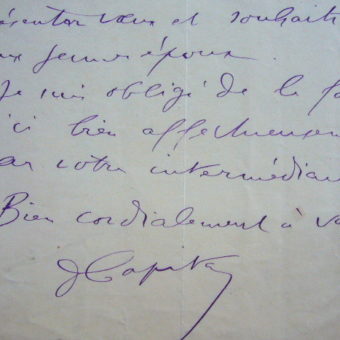 présenter vœux et souhaits
aux jeunes époux.
Je suis obligé de le fa
ici bien affectueusem
par votre intermédiai
Bien cordialement à vo